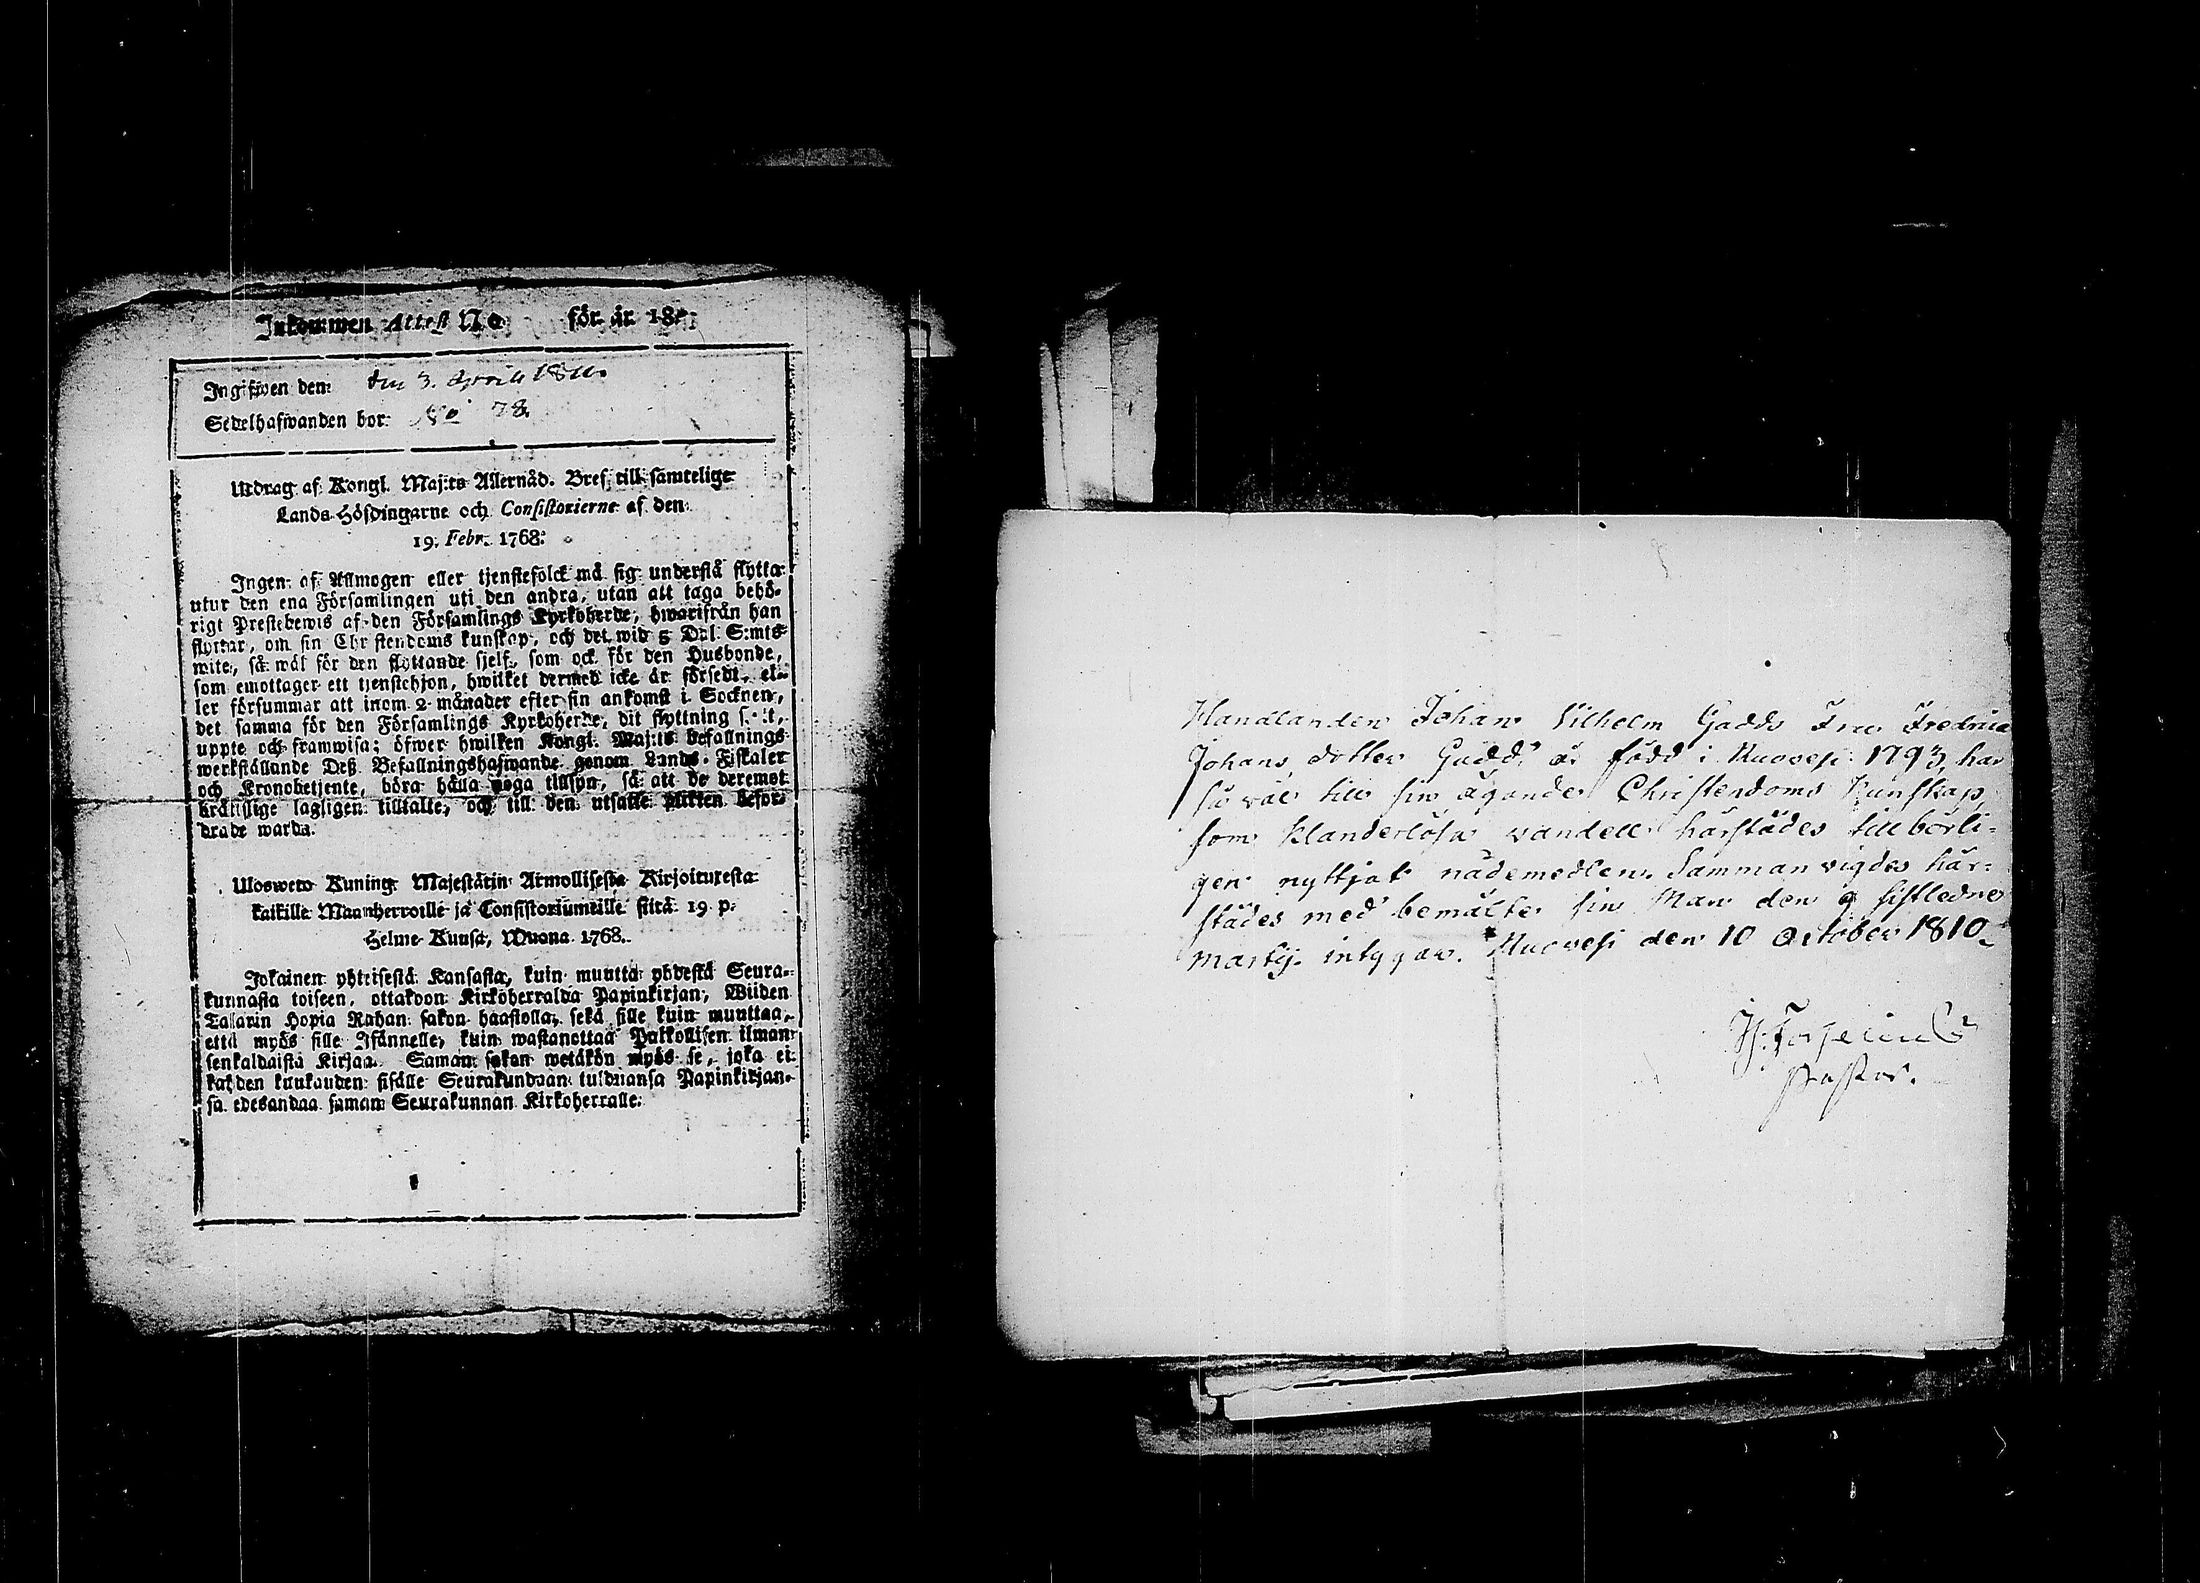 Inkommen Attest No för år 18
Ingifwen den: den 3. Aprill 1811.
Sedelhafwanden bor: No 78.
Utdrag af Kongl. Maj:ts Allernåd. Bref till samtelige
Lands-Höfdingarne och Consistorierne af den
19. Febr. 1768.
Ingen af Allmogen eller tjenstefolck må sig understå flytta
utur den ena Församlingen uti den andra, utan att taga behö-
rigt Prestebewis af den Församlings Kyrkoherde, hwarifrån han
flyttar, om sin Christendoms kunskap, och det wid 5 Dal. S:mts
wite, så wäl för den flyttande sjelf, som ock för den Husbonde,
som emottager ett tjenstehjon, hwilket dermed icke är försedt, el-
ler försummar att inom 2 månader efter sin ankomst i Socknen,
det samma för den Församlings Kyrkoherde, dit flyttning skett,
uppte och framwisa; öfwer hwilken Kongl. Maj:ts befallnings
werkställande Deß Befallningshafwande genom Lands-Fiskaler
och Kronobetjente, böra hålla noga tillsyn, så att de deremot
bråttslige lagligen tilltalte, och till den utsatte plikten befor-
drade warda.
Uloswetö Kuning. Majestätin Armollisesta Kirjoituxesta
kaikille Maanherroille ja Consistoriumeille siitä 19 p.
Helme-Kuusa, Wuona 1768.
Jokainen yhteisestä Kansasta, kuin muutta yhdestä Seura-
kunnasta toiseen, ottakoon Kirkoherralda Papinkirjan, Wiiden
Talarin Hopia Rahan sakon haastolla, sekä sille kuin muuttaa,
että myös sille Isännelle, kuin wastanottaa Palkollisen ilman
senkaldaista Kirjaa. Saman sakon wetäkön myös se, joka ei
kahden kuukauden sisälle Seurakundaan tulduansa Papinkirjan-
sa edesandaa saman Seurakunnan Kirkoherralle.
Handlanden Johan Vilhelm Gadds Fru Fredrica
Johans dotter Gadd, är född i Ruovesi 1793, har
så väl till sin ägande Christendoms Kunskap,
som klanderlösa vandell härstädes tillbörli-
gen nyttjat nådemedlen. Sammanvigdes här-
städes med bemälte sin Man den 9 sistledne
martij. intygar. Ruovesi den 10 October 1810.
Pastor.